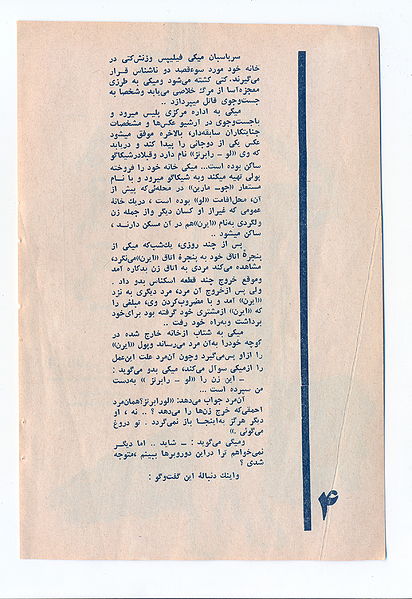 سرپاسبان میکی فیلیپس وزنش‌کتی در
خانه خود مورد سوءقصد دو ناشناس قرار
می‌گیرند، کتی کشته می‌شود ومیکی به طرزی
معجزه‌آسا از مرگ خلاصی می‌یابد وشخصا به
جست‌وجوی قاتل میپردازد ..
میکی به اداره مرکزی پلیس میرود و
باجست‌وجوی در آرشیو عکس‌ها و مشخصات
جنایتکاران سابقه‌دار، بالاخره موفق میشود
عکس یکی از دوجانی را پیدا کند و دریابد
که وی «لو ـ رابرتز» نام دارد وقبلادرشیکاگو
ساکن بوده است... میکی خانه خود را فروخته
پولی تهیه میکند وبه شیکاگو میرود و با نام
مستعار «جوـ مارین» در محله‌ئی‌که پیش از
آن، محل‌اقامت «لو» بوده است ، دریك خانهٔ
عمومی که غیراز او کسان دیگر واز جمله زن
ولگردی به‌نام «ایرن»هم در آن مسکن دارند ،
ساکن میشود ..
پس از چند روزی، یك‌شب‌که میکی از
پنجرهٔ اتاق خود به پنجرهٔ اتاق «ایرن»می‌نگرد،
مشاهده می‌کند مردی به اتاق زن بدکاره آمد
وموقع خروج چند قطعه اسکناس بدو داد .
ولی پس ازخروج آن مرد، مرد دیگری به نزد
«ایرن» آمد و با مضروب‌کردن وی، مبلغی را
که «ایرن» ازمشتری خود گرفته بود برای‌خود
برداشت وبه‌راه خود رفت ..
میکی به شتاب ازخانه خارج شده در
کوچه خودرا به‌آن مرد می‌رساند وپول «ایرن»
را ازاو پس‌می‌گیرد وچون آن‌مرد علت این‌عمل
را ازمیکی سوال می‌کند، میکی بدو می‌گوید :
ـ این زن را «لو ـ رابرتز » به‌دست
من سپرده است ...
آن‌مرد جواب می‌دهد: «لورابرتز؟همان‌مرد
احمقی‌که خرج زن‌ها را می‌دهد ؟ .. نه ، او
دیگر هرگز به‌اینجا باز نمی‌گردد . تو دروغ
می‌گوئی .»
ومیکی می‌گوید : ـ شاید .. اما دیگر
نمی‌خواهم ترا دراین دوروبرها ببینم ،متوجه
شدی ؟
واینك دنبالهٔ این گفت‌وگو :
۴